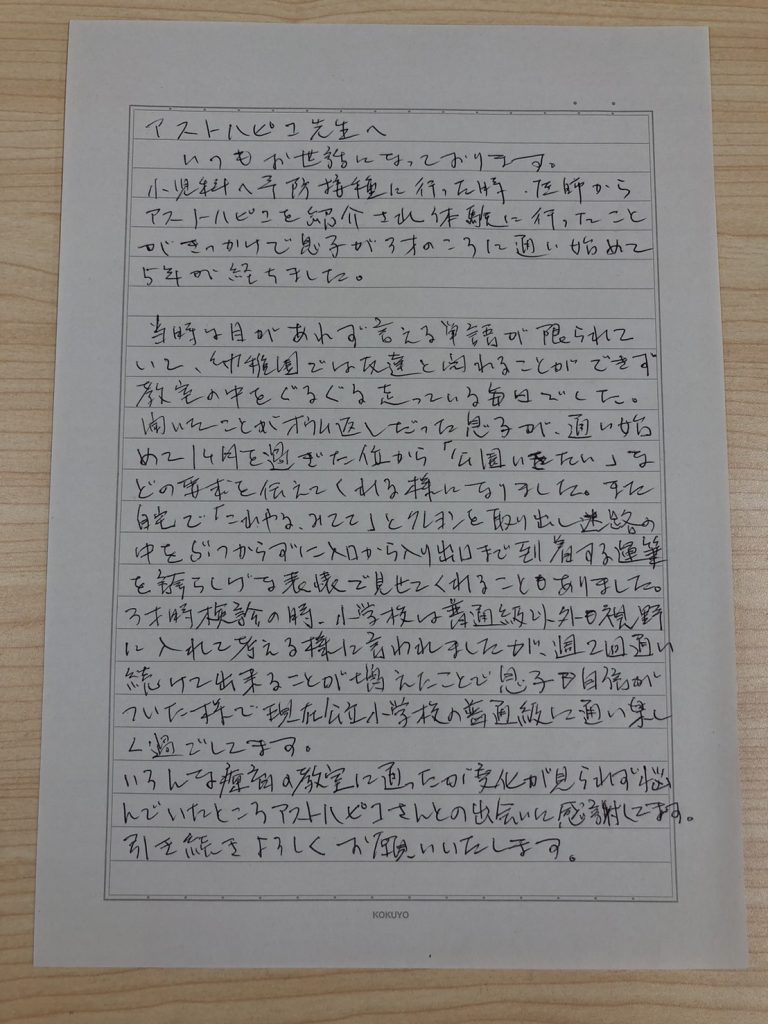 アストハピコ先生へ
いつもお世話になっております。
小児科へ予防接種に行った時、医師から
アストハピコを紹介され体験に行ったこと
がきっかけで息子が3才のころに通い始めて
5年が経ちました。
当時は目があわず言える単語が限られて
いて、幼稚園では友達と関わることができず
教室の中をぐるぐる走っている毎日でした。
聞いたことがオウム返しだった息子が、通い始
めて1ヶ月を過ぎた位から「公園いきたい」な
どの要求を伝えてくれる様になりました。また
自宅で「これやる、みてて」とクレヨンを取り出し迷路の
中をぶつからずに入口から入り出口まで到着する運筆
を誇らしげな表情で見せてくれることもありました。
3才時検診の時、小学校は普通級以外も視野
に入れて考える様に言われましたが、週2回通い
続けて出来ることが増えたことで息子も自信が
ついた様で現在公立小学校の普通級に通い楽し
く過ごしてます。
いろんな療育の教室に通ったが変化が見られず悩
んでいたところアストハピコさんとの出会いに感謝してます。
引き続きよろしくお願いいたします。
KOKUYO